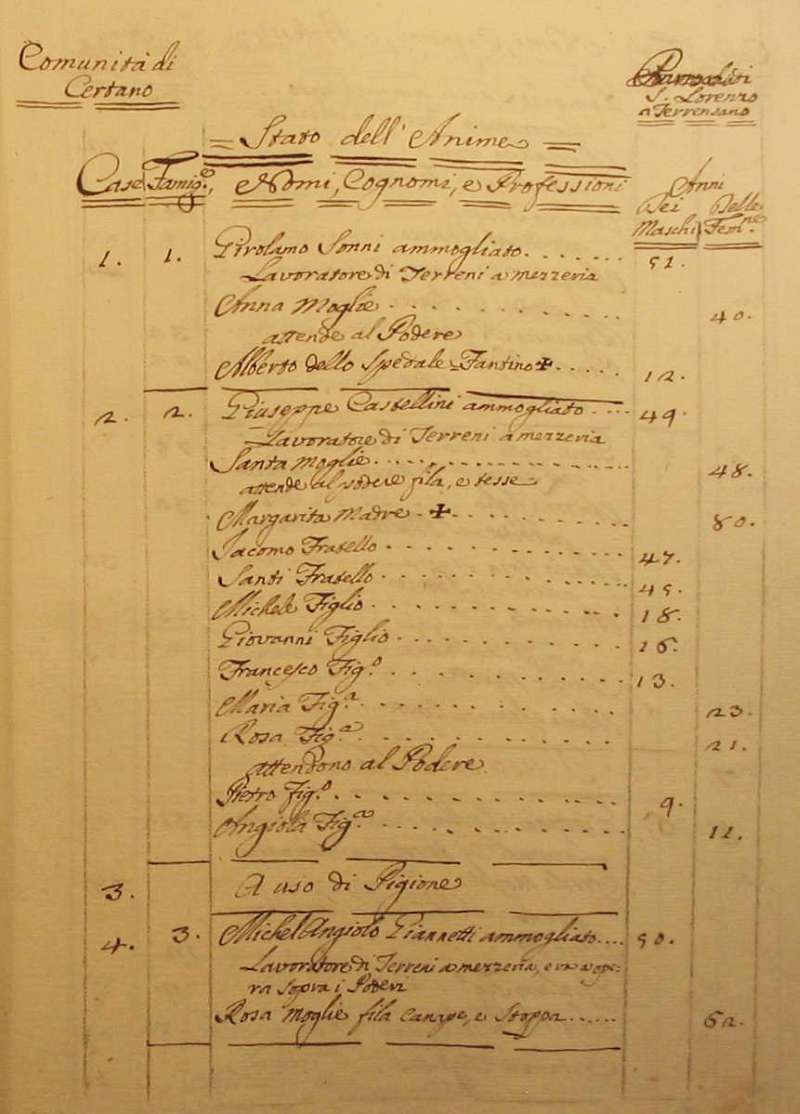 Comunità di
Certano
S. Lorenzo
a Terrensano
Stato dell'Anime
Case Famig.e, e Nomi, Cognomi, e Professioni Anni
Dei Maschi Delle Fem.ne
1. 1. Girolamo Sonni ammogliato 51.
Lavoratore di Terreni a mezzeria
Anna Moglie 40.
attende al Podere
Alberto dello Spedale Fantino ✠ 12.
2. 2. Giuseppe Castellini ammogliato 49.
Lavoratore di Terreni a mezzeria
Santa Moglie 48.
attende al podere fila, e tesse
Margarita Madre ✠ 80.
Jacomo Fratello 47.
Santi Fratello 45.
Michele Figlio 18.
Giovanni Figlio 16.
Francesco Fig.o 13.
Maria Fig.a 23.
Rosa Fig.a 21.
attendono al Podere
Pietro Fig.o 9.
Angiola Fig.a 11.
3. A uso di Pigione
4. 3. Michel'Angiolo Giannetti ammogliato 50.
Lavoratore di Terreni a mezzeria, e va a ope:
ra sopra i Poderi
Rosa Moglie fila Canape, e Stoppa 62.